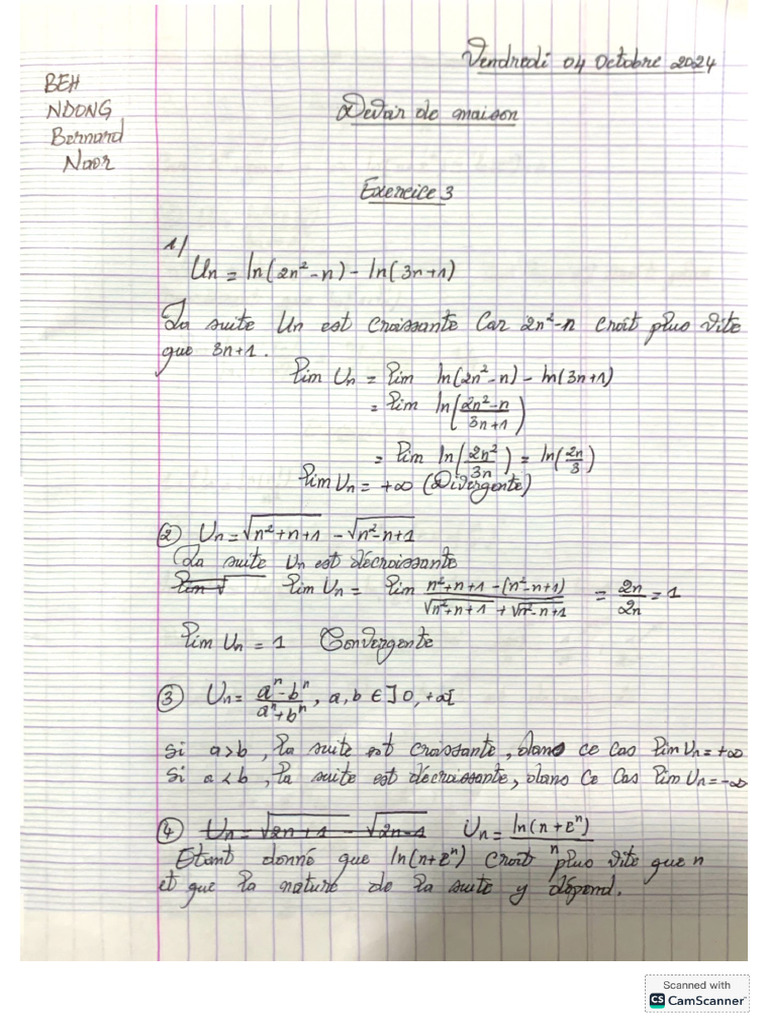 Vendredi 04 Octobre 2024
BEH
NDONG
Bernard
Naor
Devoir de maison
Exercice 3
1/
Un = ln(2n²-n) - ln(3n+1)
La suite Un est croissante Car 2n²-n croît plus vite
que 3n+1.
lim Un = lim ln(2n²-n) - ln(3n+1)
= lim ln(2n²-n / 3n+1)
= lim ln(2n² / 3n) = ln(2n / 3)
lim Un = +∞ (Divergente)
② Un = √n²+n+1 - √n²-n+1
La suite Un est décroissante
lim √ lim Un = lim n²+n+1-(n²-n+1) / √n²+n+1 + √n²-n+1 = 2n / 2n = 1
lim Un = 1 Convergente
③ Un = aⁿ-bⁿ / aⁿ+bⁿ, a,b ∈ ]0,+∞[
si a>b, la suite est croissante, dans ce cas lim Un = +∞
si a<b, la suite est décroissante, dans ce cas lim Un = -∞
④ Un = √2n+1 - √2n-1 Un = ln(n+eⁿ) / n
Etant donné que ln(n+eⁿ) croît plus vite que n
et que la nature de la suite y dépend.
Scanned with
CS CamScanner